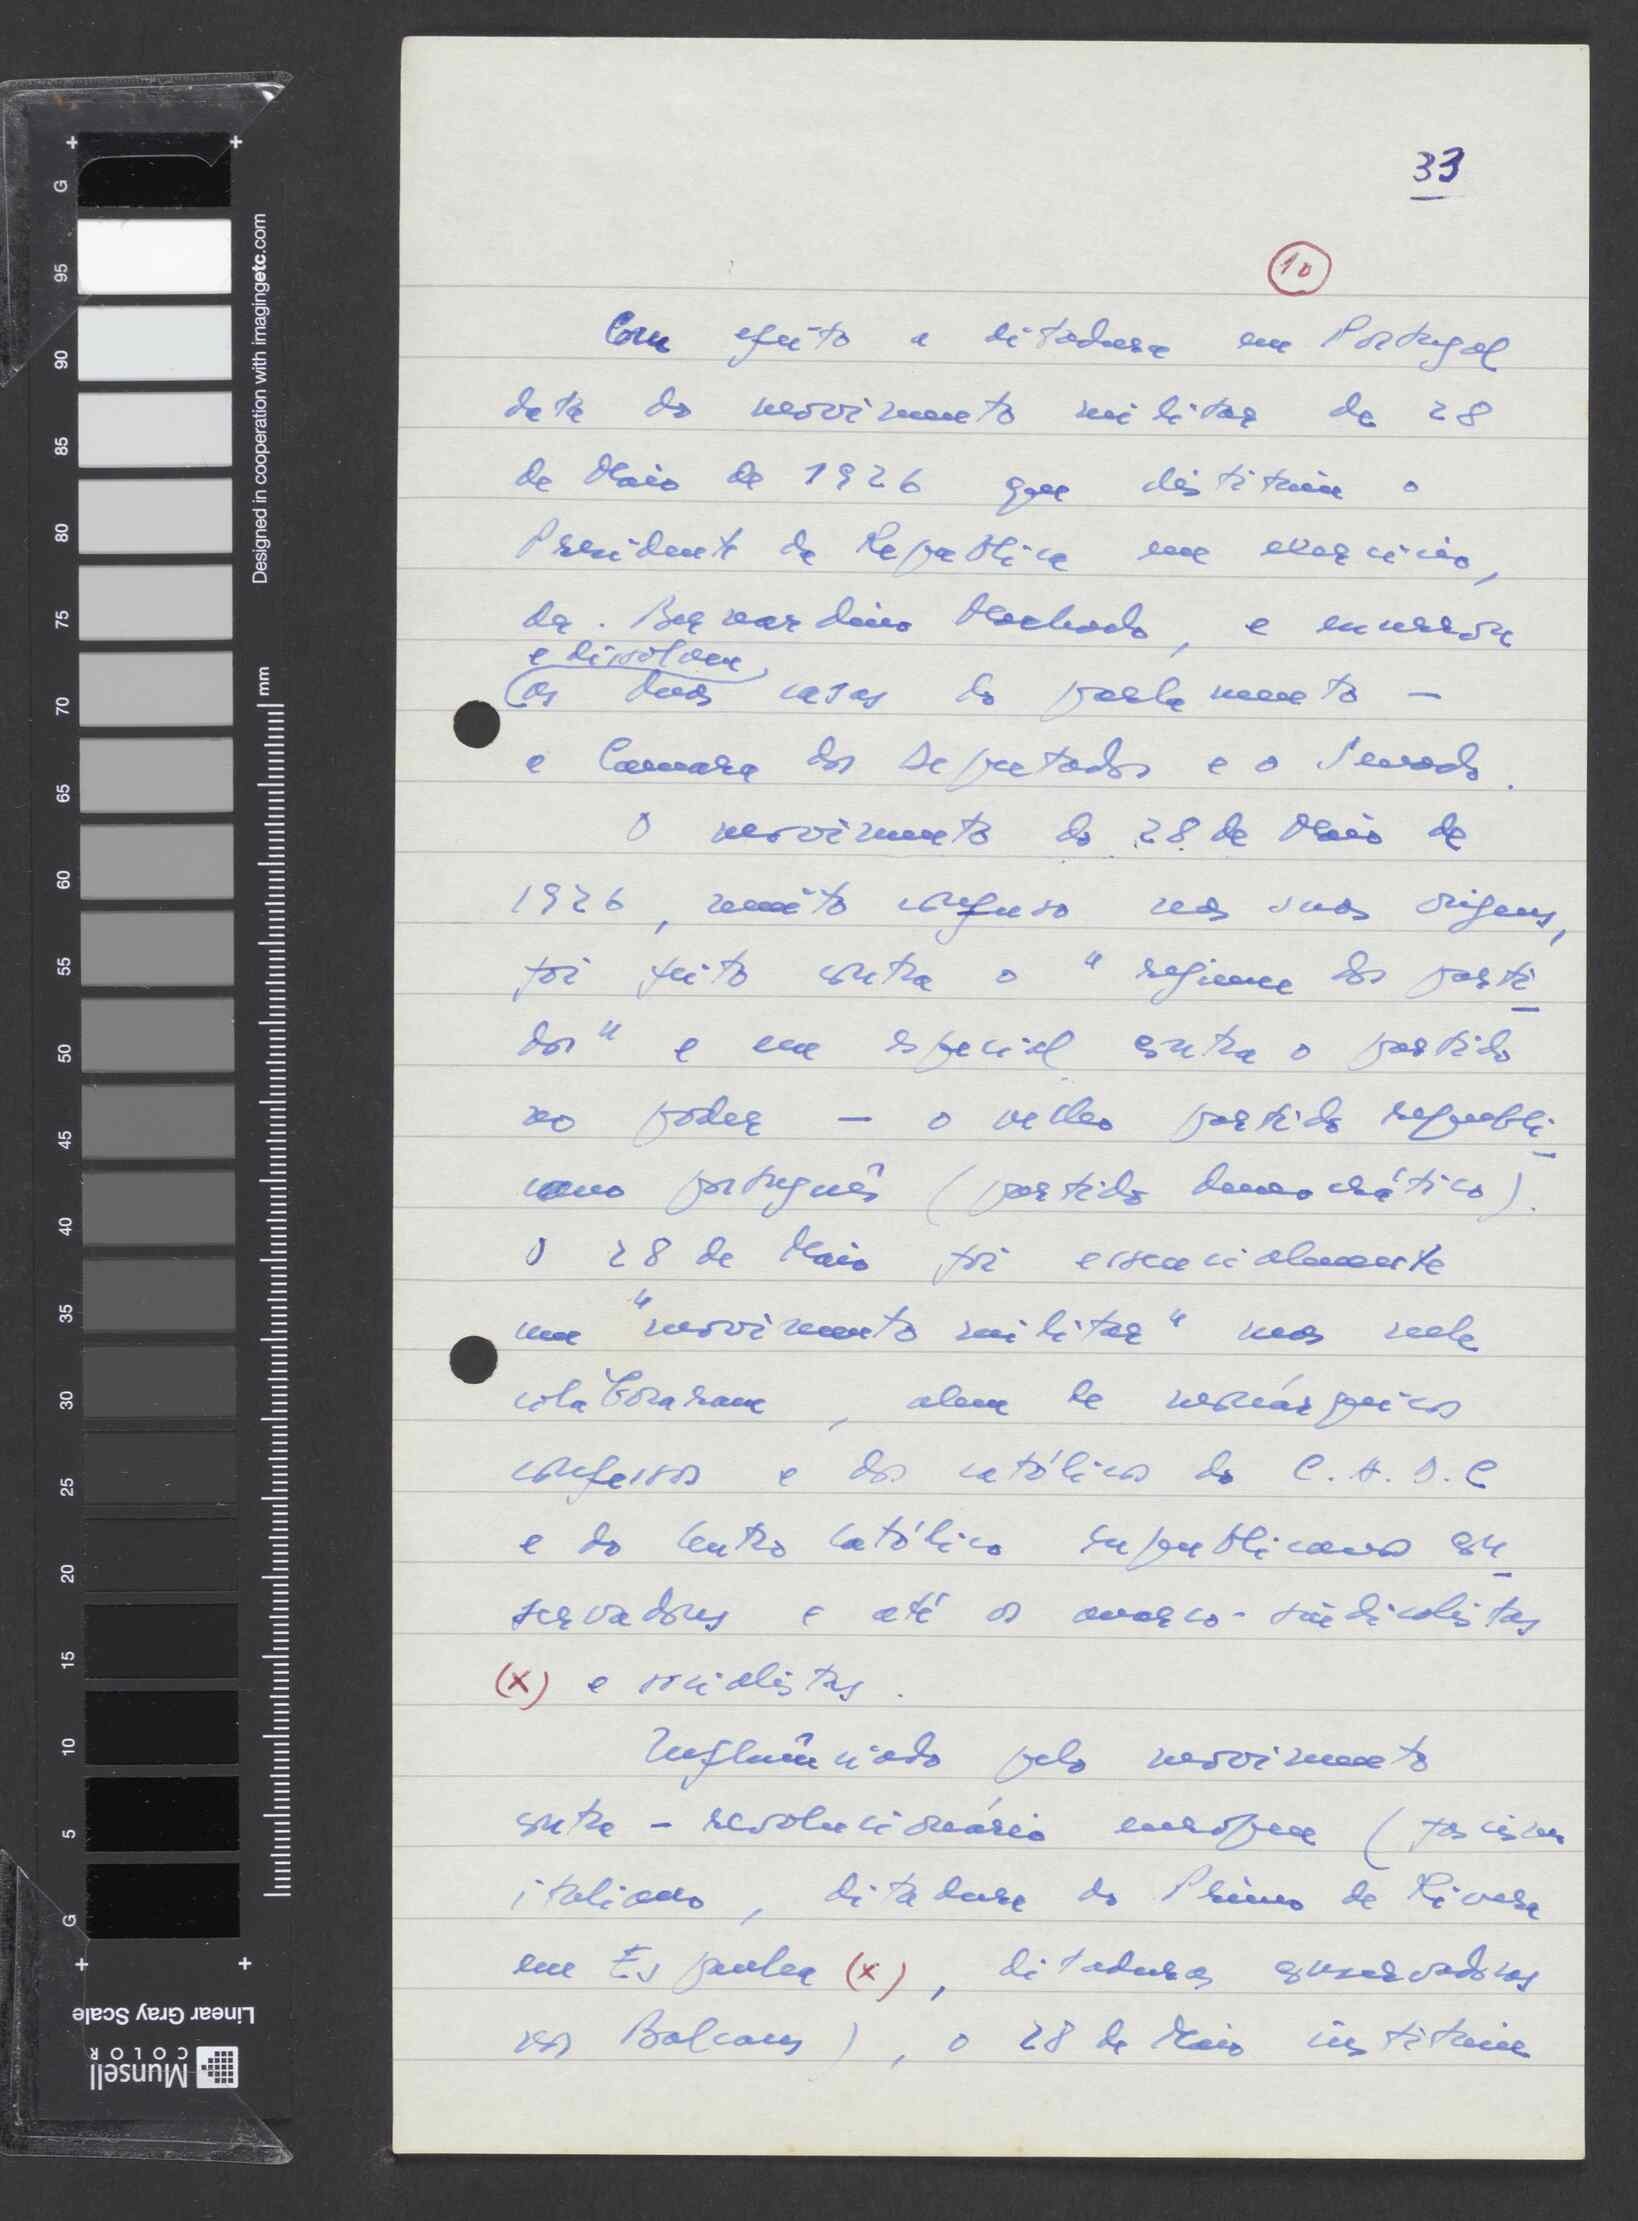 33
10
Com efeito a ditadura em Portugal
data do movimento militar de 28
de Maio de 1926 que distituiu o
Presidente da Republica em exercicio,
dr. Bernardino Machado, e encerrou
e dissolveu
as duas casas do parlamento —
a Camara dos Deputados e o Senado.
O movimento do 28 de Maio de
1926, muito confuso nas suas origens,
foi feito contra o "regime dos parti
dos" e em especial contra o partido
no poder — o velho partido republi
cano português (partido democrático).
O 28 de Maio foi essencialmente
um "movimento militar" mas nele
colaboraram, alem de monárquicos
confessos e dos católicos do C.A.D.C
e do Centro Católico republicanos con
servadores e até os anarco-sindicalistas
(x) e socialistas.
Influênciado pelo movimento
contra-revolucionário europeu (fascismo
italiano, ditadura do Primo de Rivera
em Espanha (x), ditaduras conservadoras
nos Balcans), o 28 de Maio instituiu
G
95
90
85
80
75
70
65
60
55
50
45
40
35
30
25
20
15
10
5
G
Designed in cooperation with imagingetc.com
mm
Linear Gray Scale
Munsell
COLOR